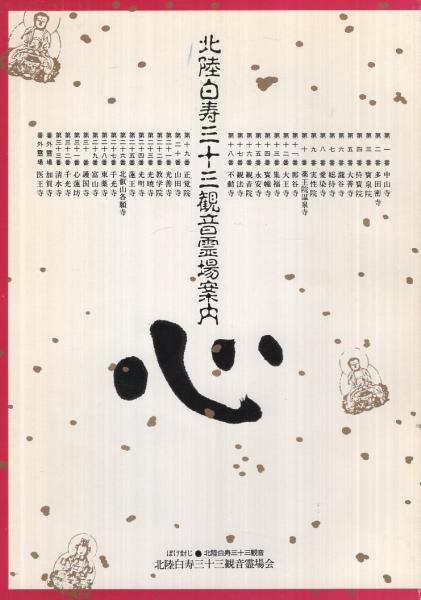 北陸白寿三十三観音霊場案内
第一番 中山寺
第二番 多田寺
第三番 寳泉院
第四番 持寳院
第五番 大善寺
第六番 瀧谷寺
第七番 総持寺
第八番 愛染寺
第九番 実性院
第十番 薬王院温泉寺
第十一番 那谷寺
第十二番 大王寺
第十三番 集福寺
第十四番 寳幢寺
第十五番 永安寺
第十六番 観音院
第十七番 観法寺
第十八番 不動寺
第十九番 正覚院
第二十番 山田寺
第二十一番 光善寺
第二十二番 教学院
第二十三番 光暁寺
第二十四番 光明寺
第二十五番 蓮王寺
第二十六番 北叡山各願寺
第二十七番 千光寺
第二十八番 東薬寺
第二十九番 富山寺
第三十番 護国寺
第三十一番 心蓮坊
第三十二番 千光寺
第三十三番 清水寺
番外霊場 加賀寺
番外霊場 医王寺
心
ぼけ封じ●北陸白寿三十三観音
北陸白寿三十三観音霊場会